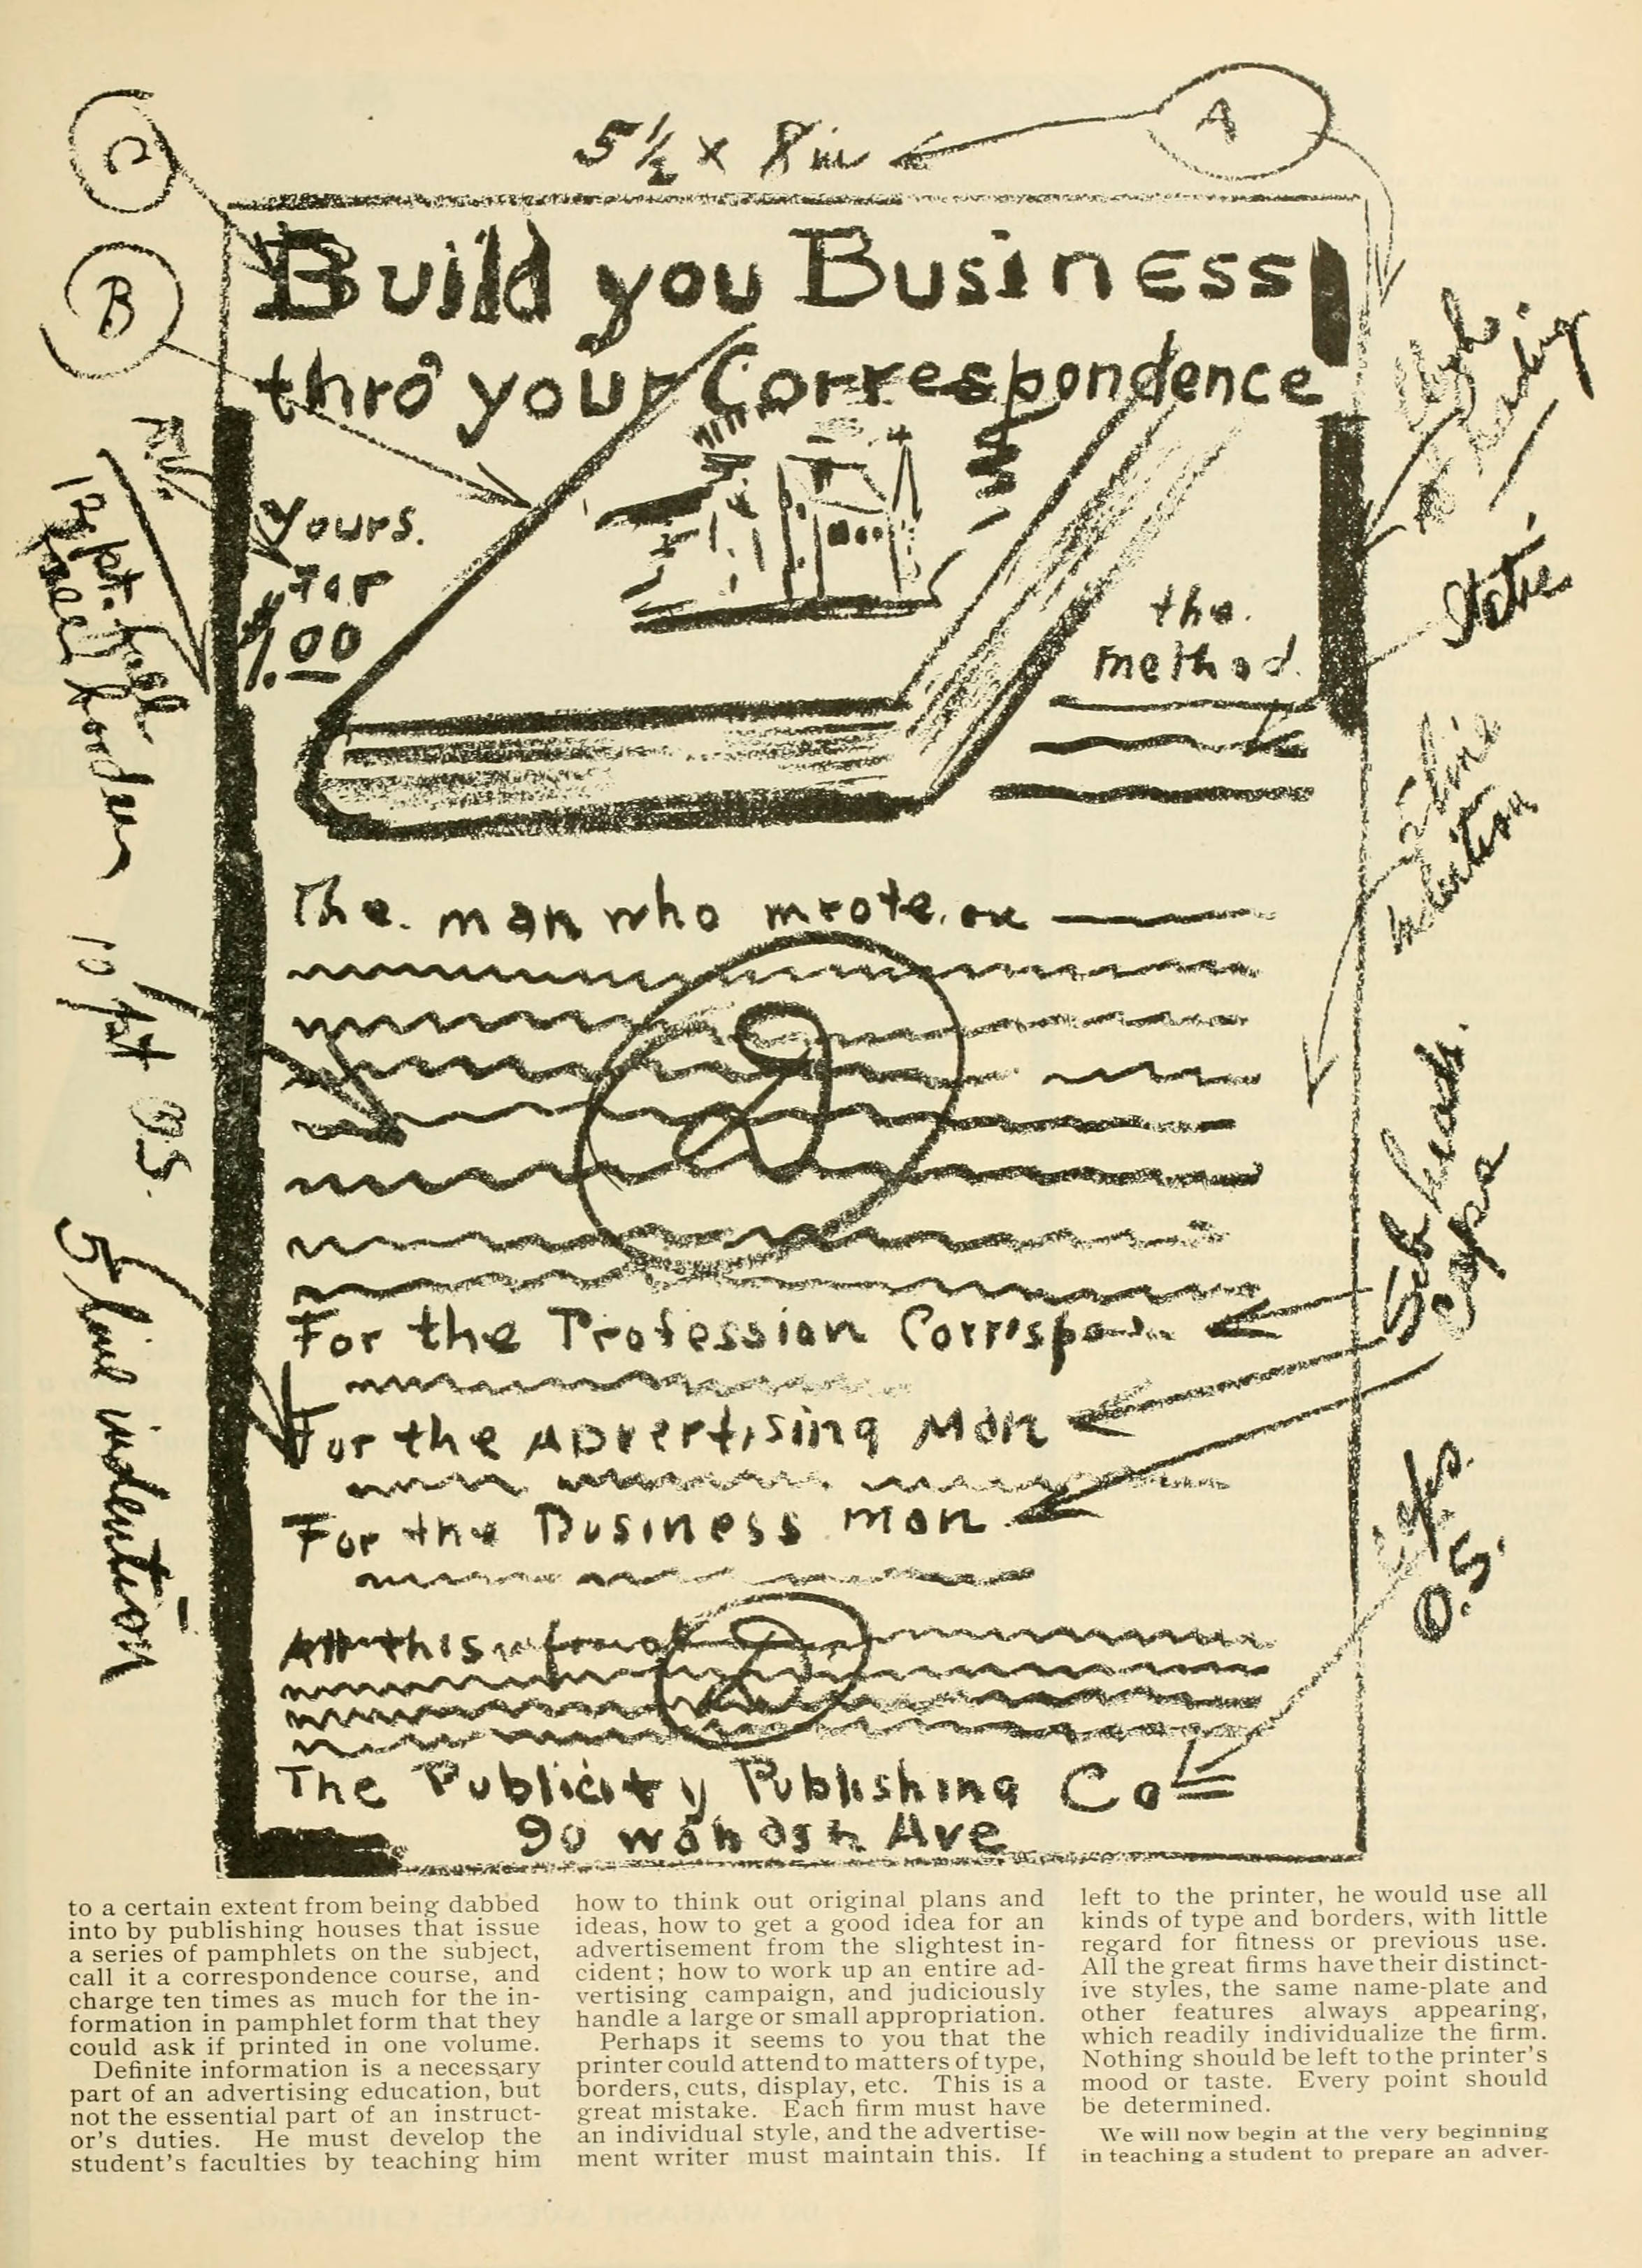 C
A
5½ x 8 in
B
Build you Business
thro your Correspondence
yours.
for
$1.00
the
method.
12 pt. full
face border
10 pt O.S.
5 line indention
2 line
indention
Sub heads.
caps
caps.
O.S.
The man who wrote
2
For the Profession Corresp
For the Advertising Man
For the Business man
All this
2
The Publicity Publishing Co
90 Wabash Ave
to a certain extent from being dabbed
into by publishing houses that issue
a series of pamphlets on the subject,
call it a correspondence course, and
charge ten times as much for the in-
formation in pamphlet form that they
could ask if printed in one volume.
Definite information is a necessary
part of an advertising education, but
not the essential part of an instruct-
or's duties. He must develop the
student's faculties by teaching him
how to think out original plans and
ideas, how to get a good idea for an
advertisement from the slightest in-
cident; how to work up an entire ad-
vertising campaign, and judiciously
handle a large or small appropriation.
Perhaps it seems to you that the
printer could attend to matters of type,
borders, cuts, display, etc. This is a
great mistake. Each firm must have
an individual style, and the advertise-
ment writer must maintain this. If
left to the printer, he would use all
kinds of type and borders, with little
regard for fitness or previous use.
All the great firms have their distinct-
ive styles, the same name-plate and
other features always appearing,
which readily individualize the firm.
Nothing should be left to the printer's
mood or taste. Every point should
be determined.
We will now begin at the very beginning
in teaching a student to prepare an adver-